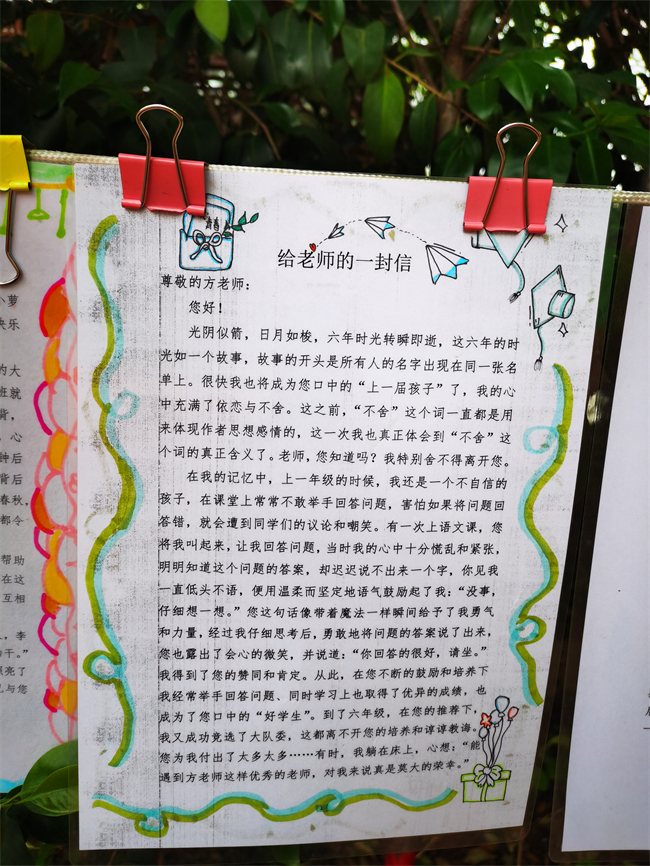 给老师的一封信
尊敬的方老师：
您好！
光阴似箭，日月如梭，六年时光转瞬即逝，这六年的时
光如一个故事，故事的开头是所有人的名字出现在同一张名
单上。很快我也将成为您口中的“上一届孩子”了，我的心
中充满了依恋与不舍。这之前，“不舍”这个词一直都是用
来体现作者思想感情的，这一次我也真正体会到“不舍”这
个词的真正含义了。老师，您知道吗？我特别舍不得离开您。
在我的记忆中，上一年级的时候，我还是一个不自信的
孩子，在课堂上常常不敢举手回答问题，害怕如果将问题回
答错，就会遭到同学们的议论和嘲笑。有一次上语文课，您
将我叫起来，让我回答问题，当时我的心中十分慌乱和紧张，
明明知道这个问题的答案，却迟迟说不出来一个字，你见我
一直低头不语，便用温柔而坚定地语气鼓励起了我：“没事，
仔细想一想。”您这句话像带着魔法一样瞬间给予了我勇气
和力量，经过我仔细思考后，勇敢地将问题的答案说了出来，
您也露出了会心的微笑，并说道：“你回答的很好，请坐。”
我得到了您的赞同和肯定。从此，在您不断的鼓励和培养下
我经常举手回答问题、同时学习上也取得了优异的成绩，也
成为了您口中的“好学生”。到了六年级，在您的推荐下，
我又成功竞选了大队委，这都离不开您的培养和谆谆教诲。
您为我付出了太多太多……有时，我躺在床上，心想：“能
遇到方老师这样优秀的老师，对我来说真是莫大的荣幸。”
小萝
快乐
的大
班就
背，
心
钟后
背后
春秋，
都令
帮助
在这
互相
，李
干。”
照亮了
己与您